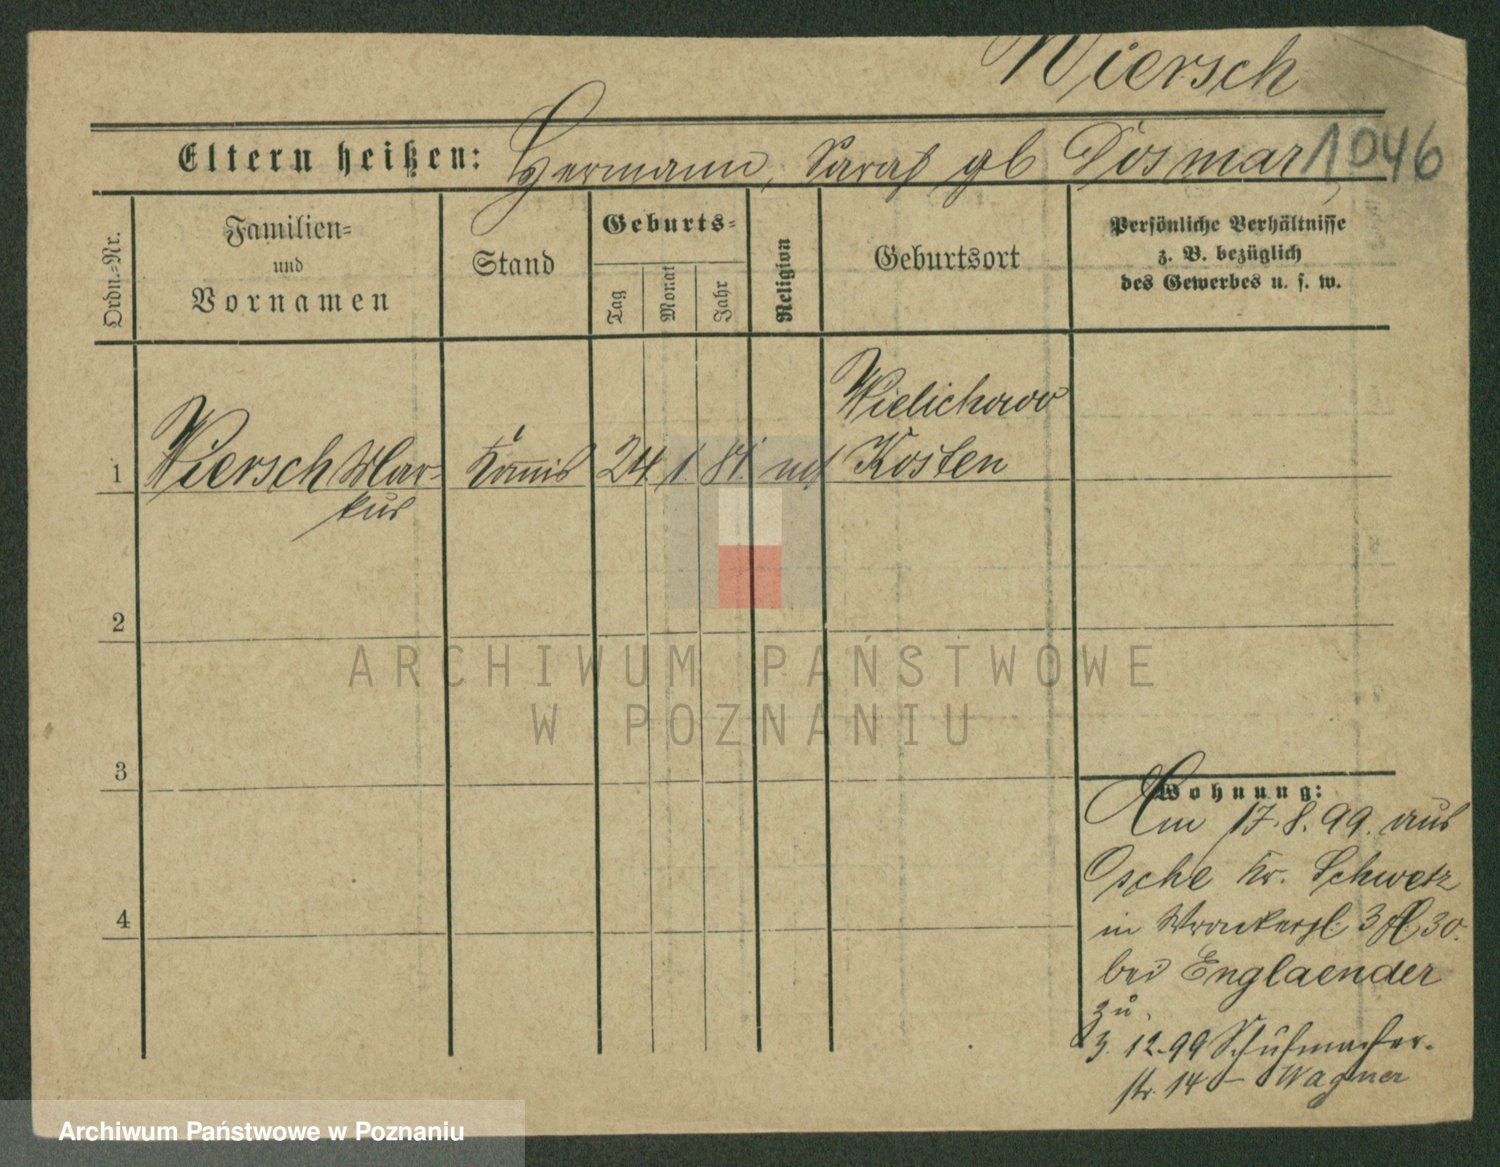 Wiersch
Eltern heißen: Hermann, Sarah gb Dosmar 1046
Ordn.-Nr.
Familien-
und
Vornamen
Stand
Geburts-
Tag
Monat
Jahr
Religion
Geburtsort
Persönliche Verhältnisse
z. B. bezüglich
des Gewerbes u. s. w.
Wielichowo
1 Wiersch Mar- Komis 24. 1. 81. Kosten
kus
2
3
4
ARCHIWUM PAŃSTWOWE
W POZNANIU
Wohnung:
Am 17. 8. 99. aus
Osche Kr. Schwetz
in Wronkerpl. 3 30.
bei Englaender
zu
3. 12. 99 Schuhmacher-
str. 14 – Wagner
Archiwum Państwowe w Poznaniu